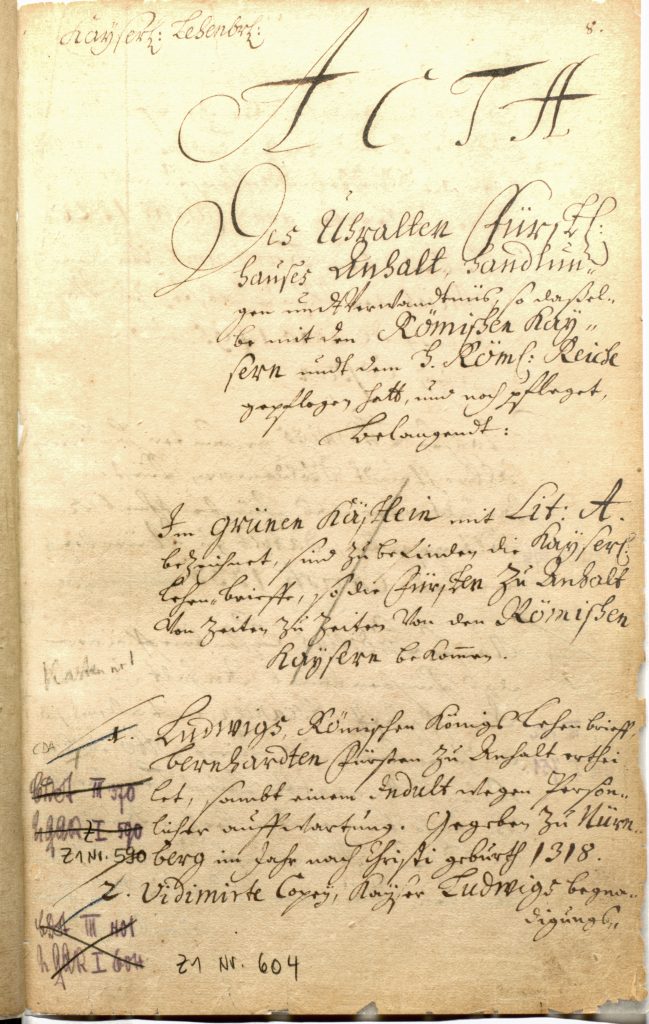 Kayserl: Lehenbrl:
8.
ACTA
Des Uhralten Fürstl:
hauses Anhalt, handlun-
gen undt verwandtnüs, so daßel-
be mit den Römischen Kay-
sern undt dem H. Röml: Reiche
gepflogen hatt, und noch pfleget,
belangendt:
Im grünen Kästlein mit Lit: A.
bezeichnet, sind zu befinden die Kayserl:
Lehen-brieffe, so die Fürsten zu Anhalt
von Zeiten zu Zeiten von den Römischen
Kaysern bekommen.
Kasten no 1
1. Ludwigs, Römischen Königs Lehenbrieff,
CDA
bernhardten Fürsten zu Anhalt erthei
III 570
let, sambt einem Indult wegen Persön-
I 590
licher auffwartung. Gegeben zu Nürn-
Z1 Nr. 590
berg im Jahr nach Christi geburth 1318.
2. Vidimirte Copey, Kayser Ludwigs begna-
digungs-
III 401
I 604
Z1 Nr. 604